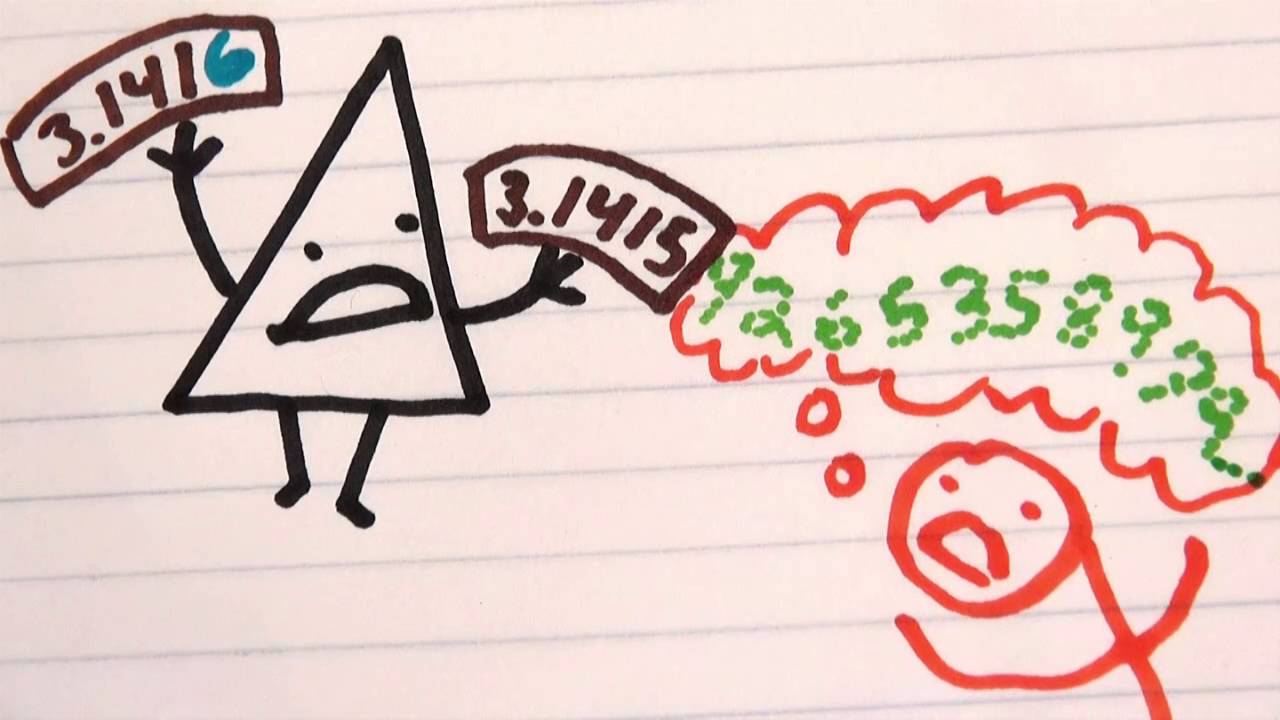 3.1416
3.1415
9265358979